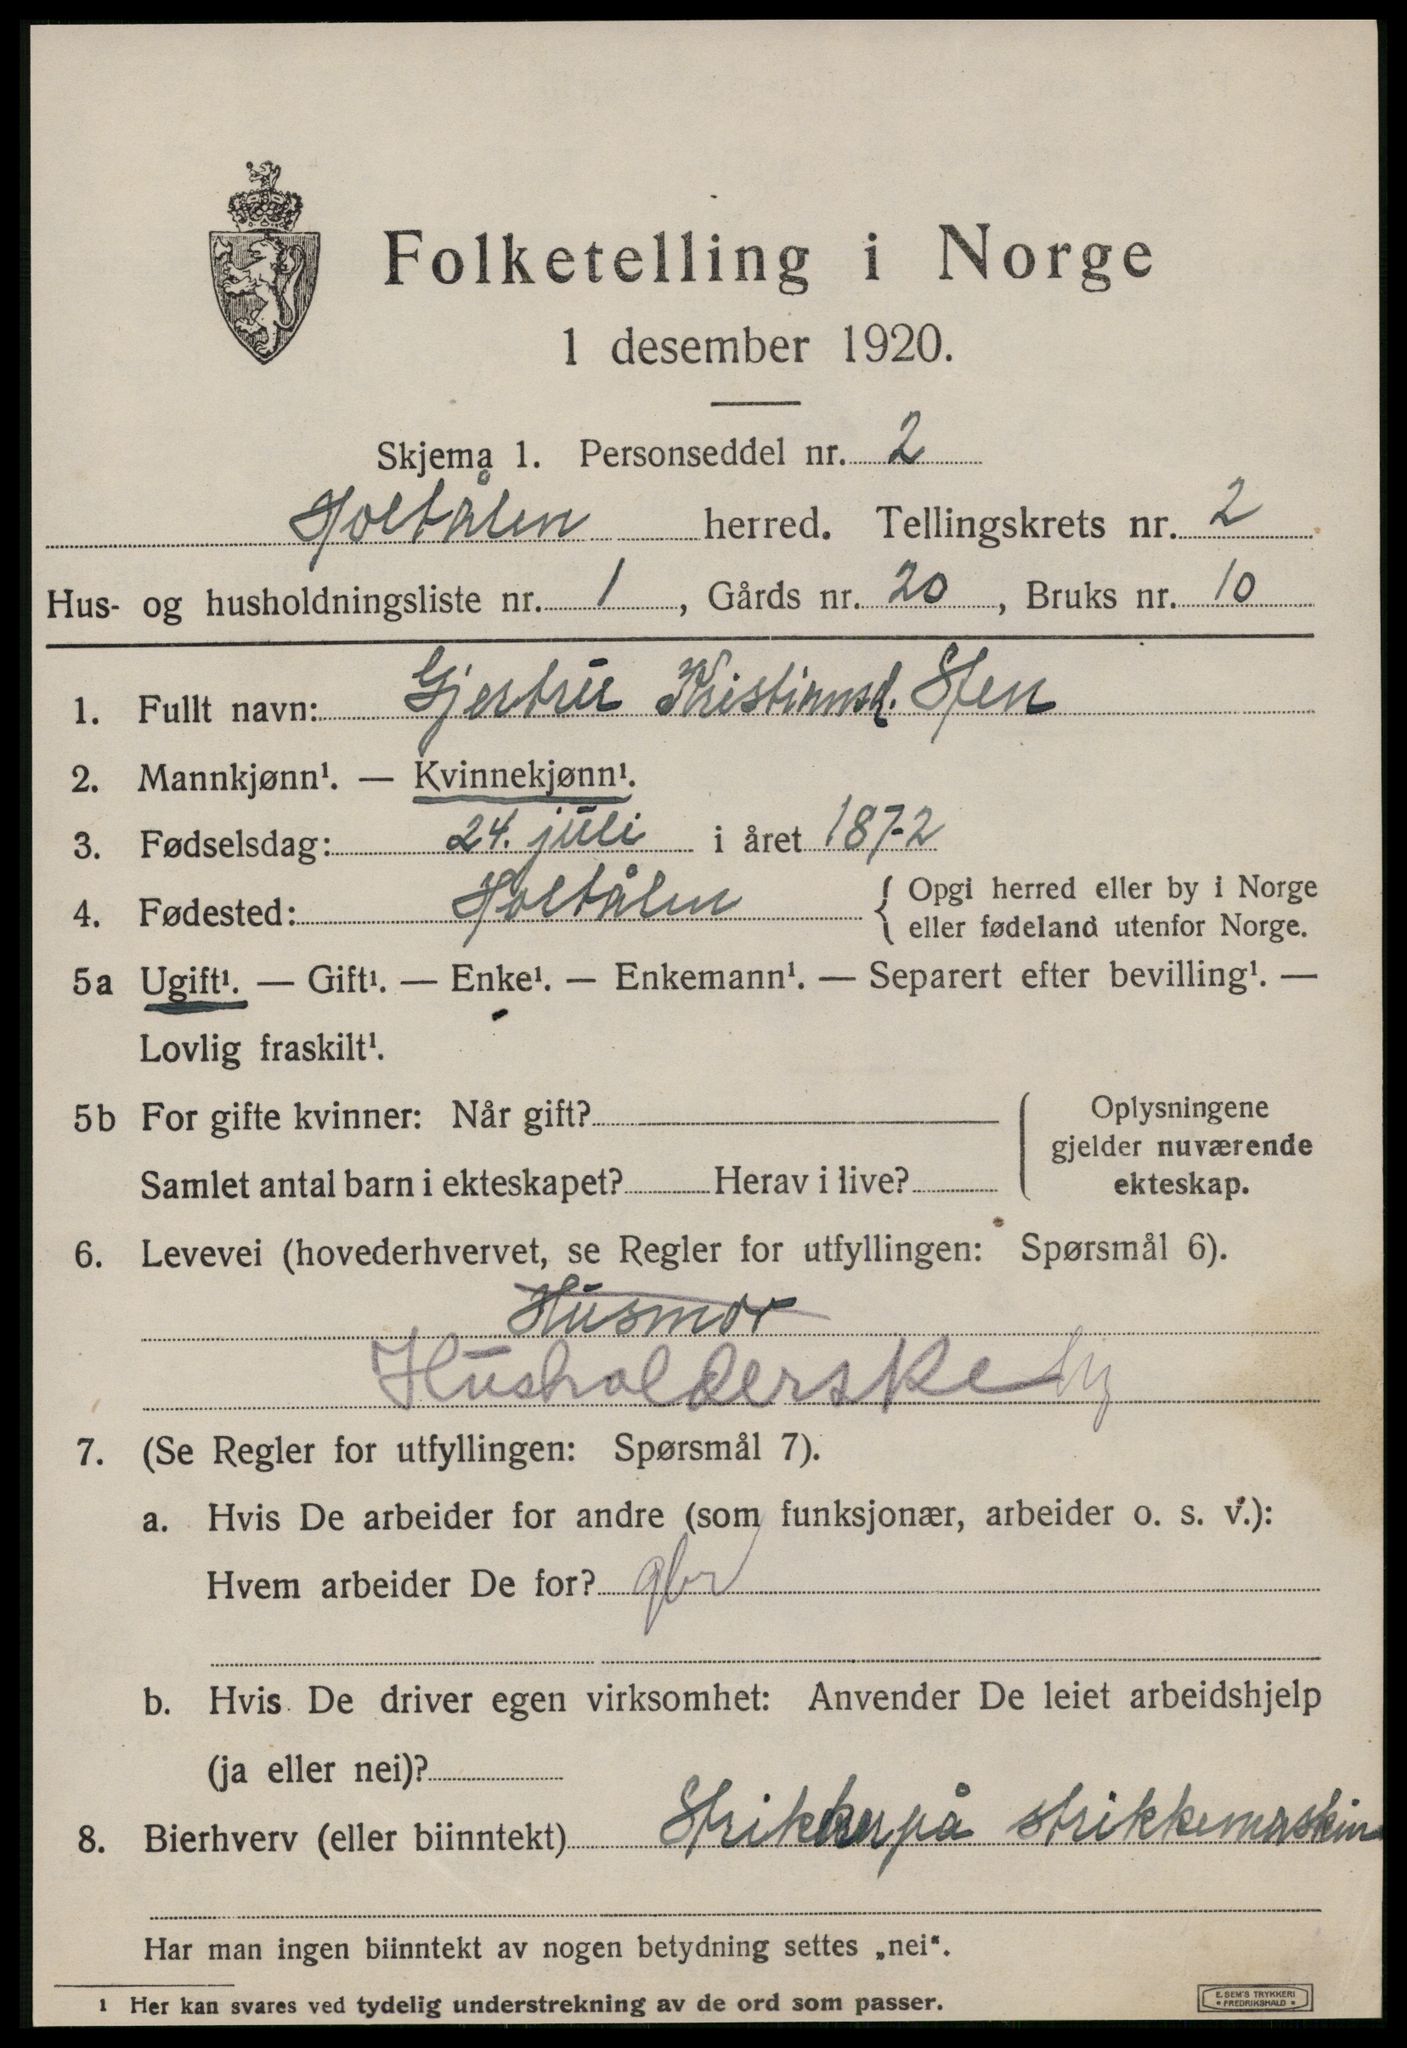 Folketelling i Norge
1 desember 1920.
Skjema 1. Personseddel nr. 2
Holtålen herred. Tellingskrets nr. 2
Hus- og husholdningsliste nr. 1, Gårds nr. 20, Bruks nr. 10
1. Fullt navn: Gjertru Kristiansd. Sten
2. Mannkjønn¹. — Kvinnekjønn¹.
3. Fødselsdag: 24. juli i året 1872
4. Fødested: Holtålen { Opgi herred eller by i Norge
eller fødeland utenfor Norge.
5a Ugift¹. — Gift¹. — Enke¹. — Enkemann¹. — Separert efter bevilling¹. —
Lovlig fraskilt¹.
5b For gifte kvinner: Når gift?
Samlet antal barn i ekteskapet? Herav i live?
Oplysningene
gjelder nuværende
ekteskap.
6. Levevei (hovederhvervet, se Regler for utfyllingen: Spørsmål 6).
Husmor
Husholderske
7. (Se Regler for utfyllingen: Spørsmål 7).
a. Hvis De arbeider for andre (som funksjonær, arbeider o. s. v.):
Hvem arbeider De for? gbr
b. Hvis De driver egen virksomhet: Anvender De leiet arbeidshjelp
(ja eller nei)?
8. Bierhverv (eller biinntekt) Strikker på strikkemaskin
Har man ingen biinntekt av nogen betydning settes „nei“.
1 Her kan svares ved tydelig understrekning av de ord som passer.
E. SEM'S TRYKKERI
FREDRIKSHALD